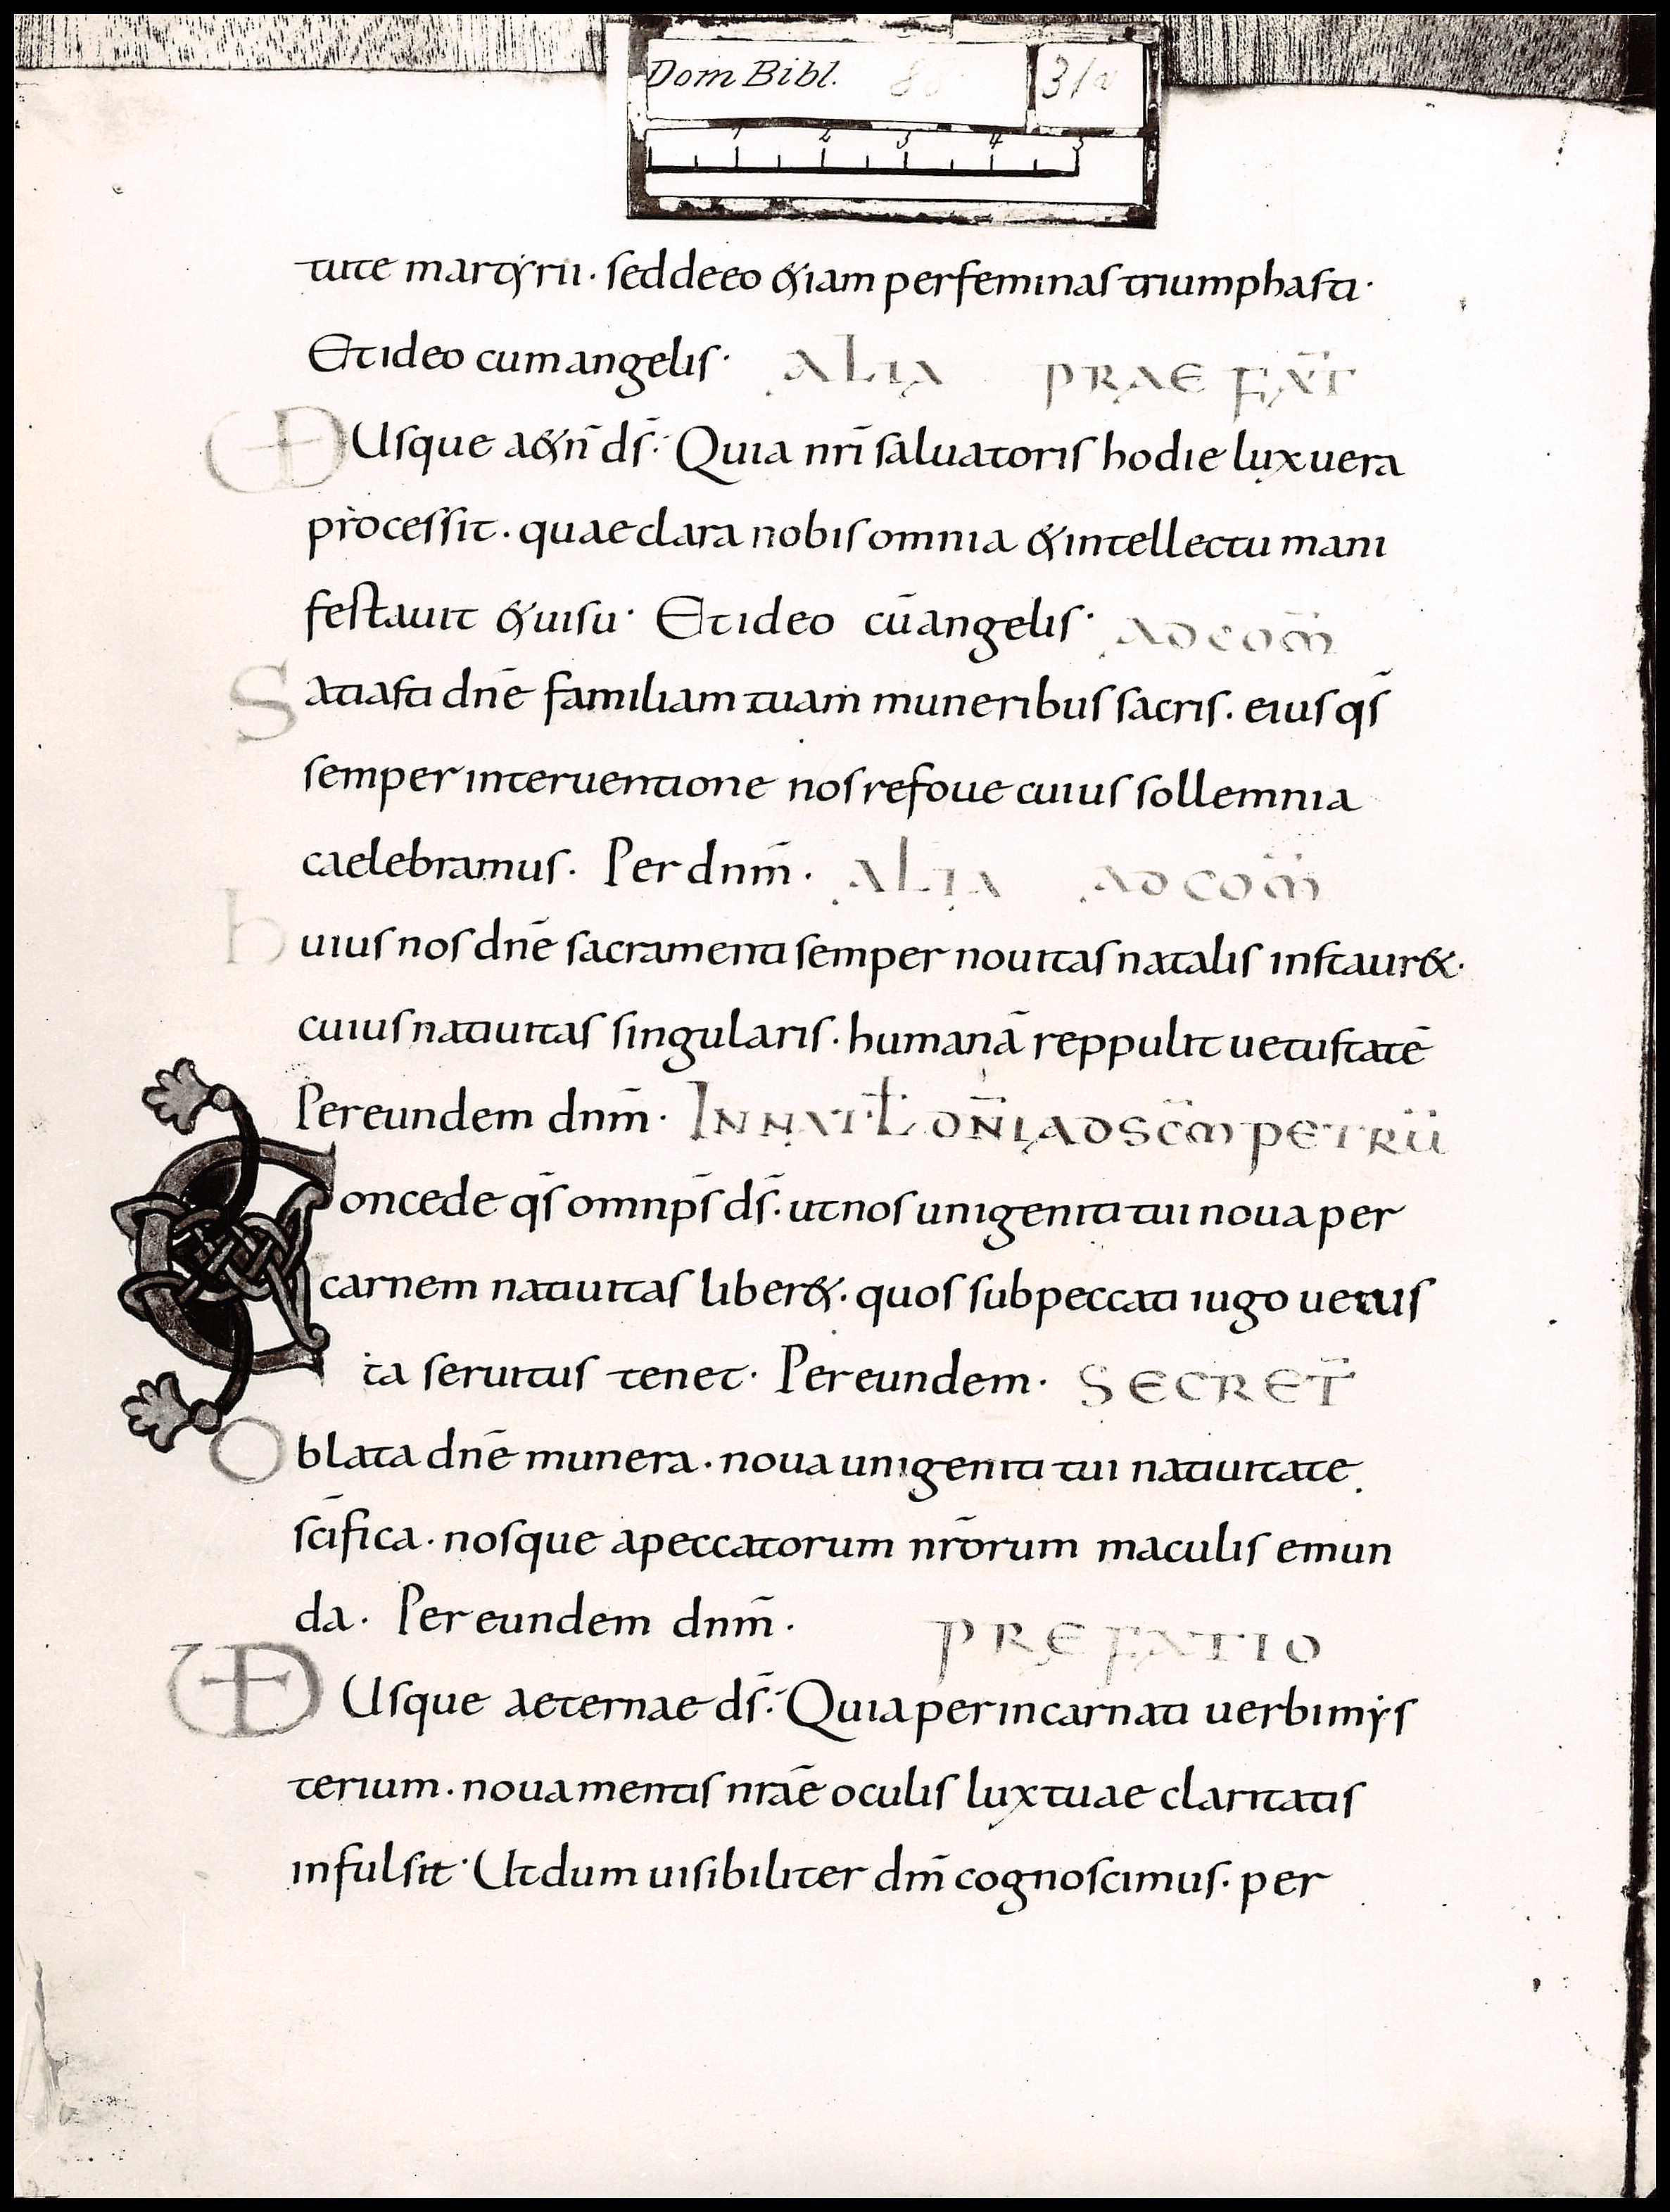 Dom Bibl. 88 31a
1 2 3 4 5
tute martyrii · sed de eo &iam per feminas triumphasti ·
Et ideo cum angelis · ALIA PRAEFAT̄
UD Usque a&n̄ d̄s · Quia nr̄i saluatoris hodie lux uera
processit · quae clara nobis omnia & intellectu mani
festauit & uisu · Et ideo cū angelis · AD COM̄
Satiasti dn̄e familiam tuam muneribus sacris · eius qs̄
semper interuentione nos refoue cuius sollemnia
caelebramus · Per dnm̄ · ALIA AD COM̄
huius nos dn̄e sacramenti semper nouitas natalis instaur& ·
cuius natiuitas singularis · humanā reppulit uetustatē
Per eundem dnm̄ · IN NAT Ł DN̄I AD SCM̄ PETRŪ
Concede qs̄ omnps̄ ds̄ · ut nos unigeniti tui noua per
carnem natiuitas liber& · quos sub peccati iugo uetus
ta seruitus tenet · Per eundem · SECRET̄
Oblata dn̄e munera · noua unigeniti tui natiuitate
sc̄ifica · nosque a peccatorum nr̄orum maculis emun
da · Per eundem dnm̄ · PREFATIO
UD Usque aeternae ds̄ · Quia per incarnati uerbi mys
terium · noua mentis nr̄ae oculis lux tuae claritatis
infulsit · Ut dum uisibiliter dm̄ cognoscimus · per